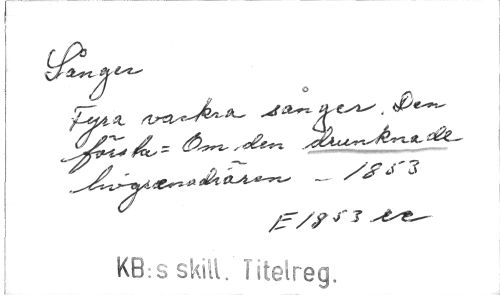 Sånger
Fyra vackra sånger. Den
första = Om den drunknade
livgrenadiären – 1853
E 1853 cc
KB:s skill. Titelreg.